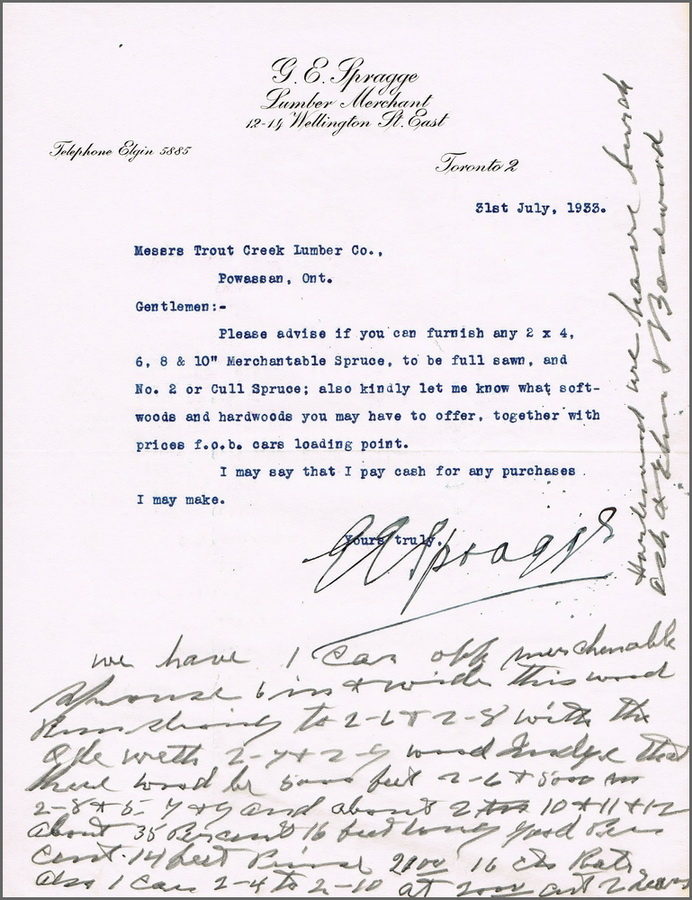 G. E. Spragge
Lumber Merchant
12-14 Wellington St. East
Telephone Elgin 5885
Toronto 2
31st July, 1933.
Messrs Trout Creek Lumber Co.,
Powassan, Ont.
Gentlemen:-
Please advise if you can furnish any 2 x 4,
6, 8 & 10" Merchantable Spruce, to be full sawn, and
No. 2 or Cull Spruce; also kindly let me know what soft-
woods and hardwoods you may have to offer, together with
prices f.o.b. cars loading point.
I may say that I pay cash for any purchases
I may make.
Yours truly,
G E Spragge
we have 1 Car off merchenable
6 in & wide this wood
to 2-6 & 2-8 with the
with 2-7 & 2-9 wood that
there wood be 5000 feet 2-6 & 5000 in
2-8 & 5- 7 & 9 and about 2 10 & 11 & 12
about 35 Per cent 16 feet long Per
cent. 14 feet 16 cts Rate
also 1 Car 2-4 to 2-10 at
Hardwood we have burch
ash & Elm & Basswood